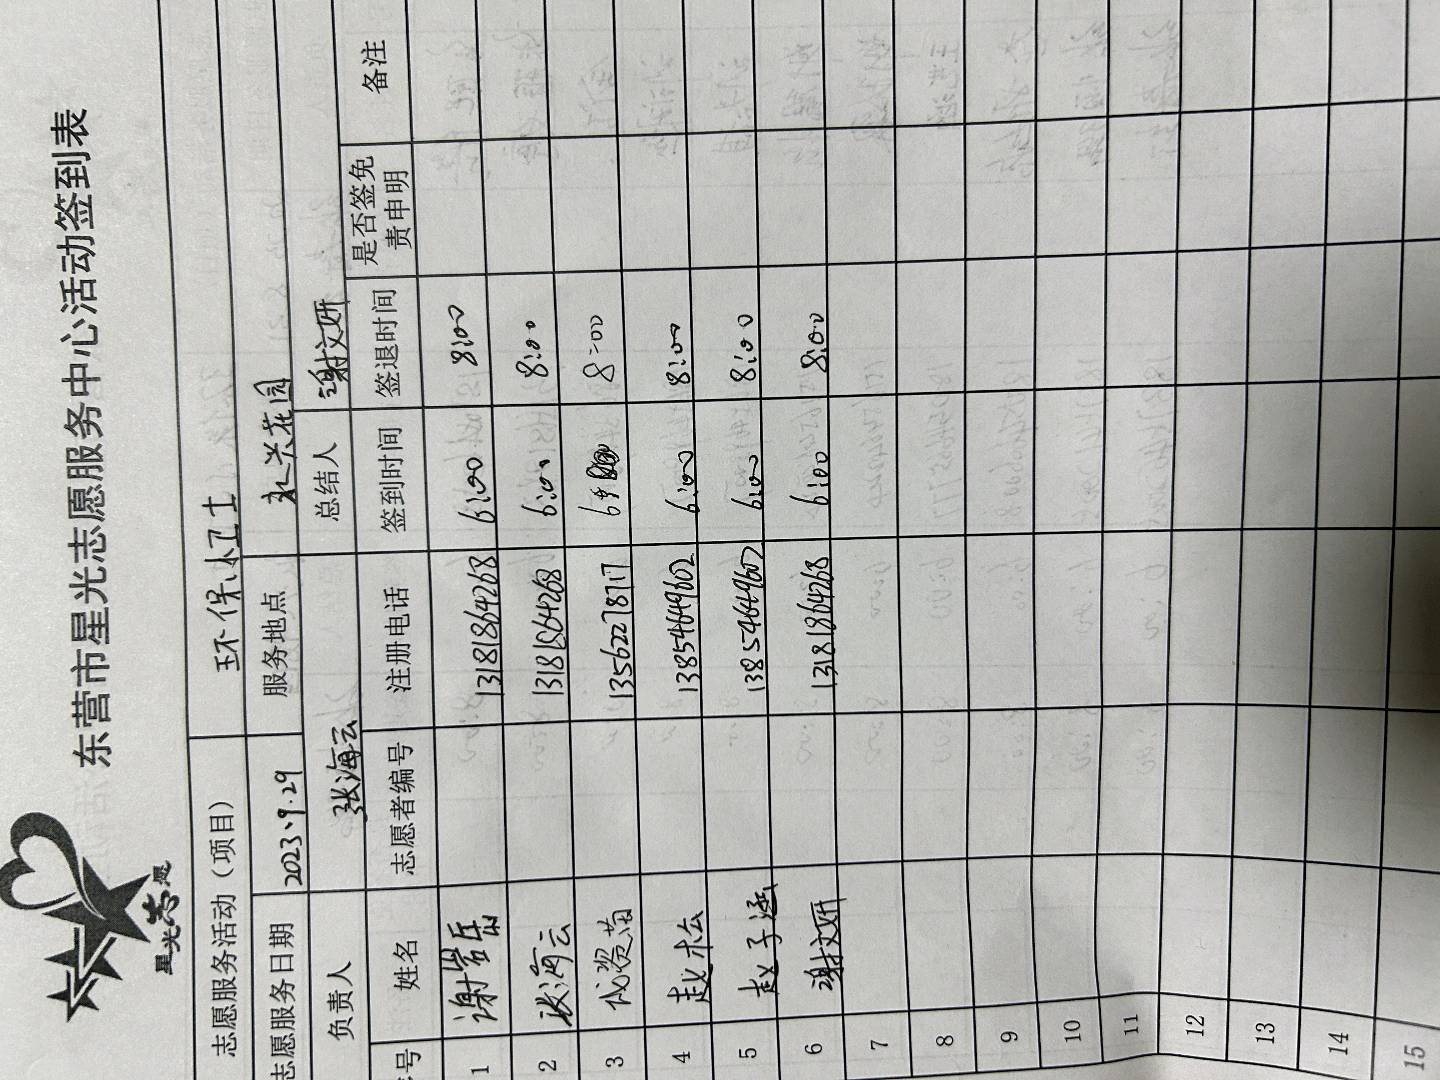 星光志愿
东营市星光志愿服务中心活动签到表
志愿服务活动（项目） 环保小卫士
志愿服务日期 2023.9.29 服务地点 永兴花园
负责人 张海云 总结人 谢文妍
号 姓名 志愿者编号 注册电话 签到时间 签退时间 是否签免责申明 备注
1 谢岩岳 13181864268 6:00 8:00
2 张海云 13181864268 6:00 8:00
3 苗 13562278717 8:00
4 赵松 13854649602 6:00 8:00
5 赵子涵 13854649602 6:00 8:00
6 谢文妍 13181864268 6:00 8:00
7
8
9
10
11
12
13
14
15